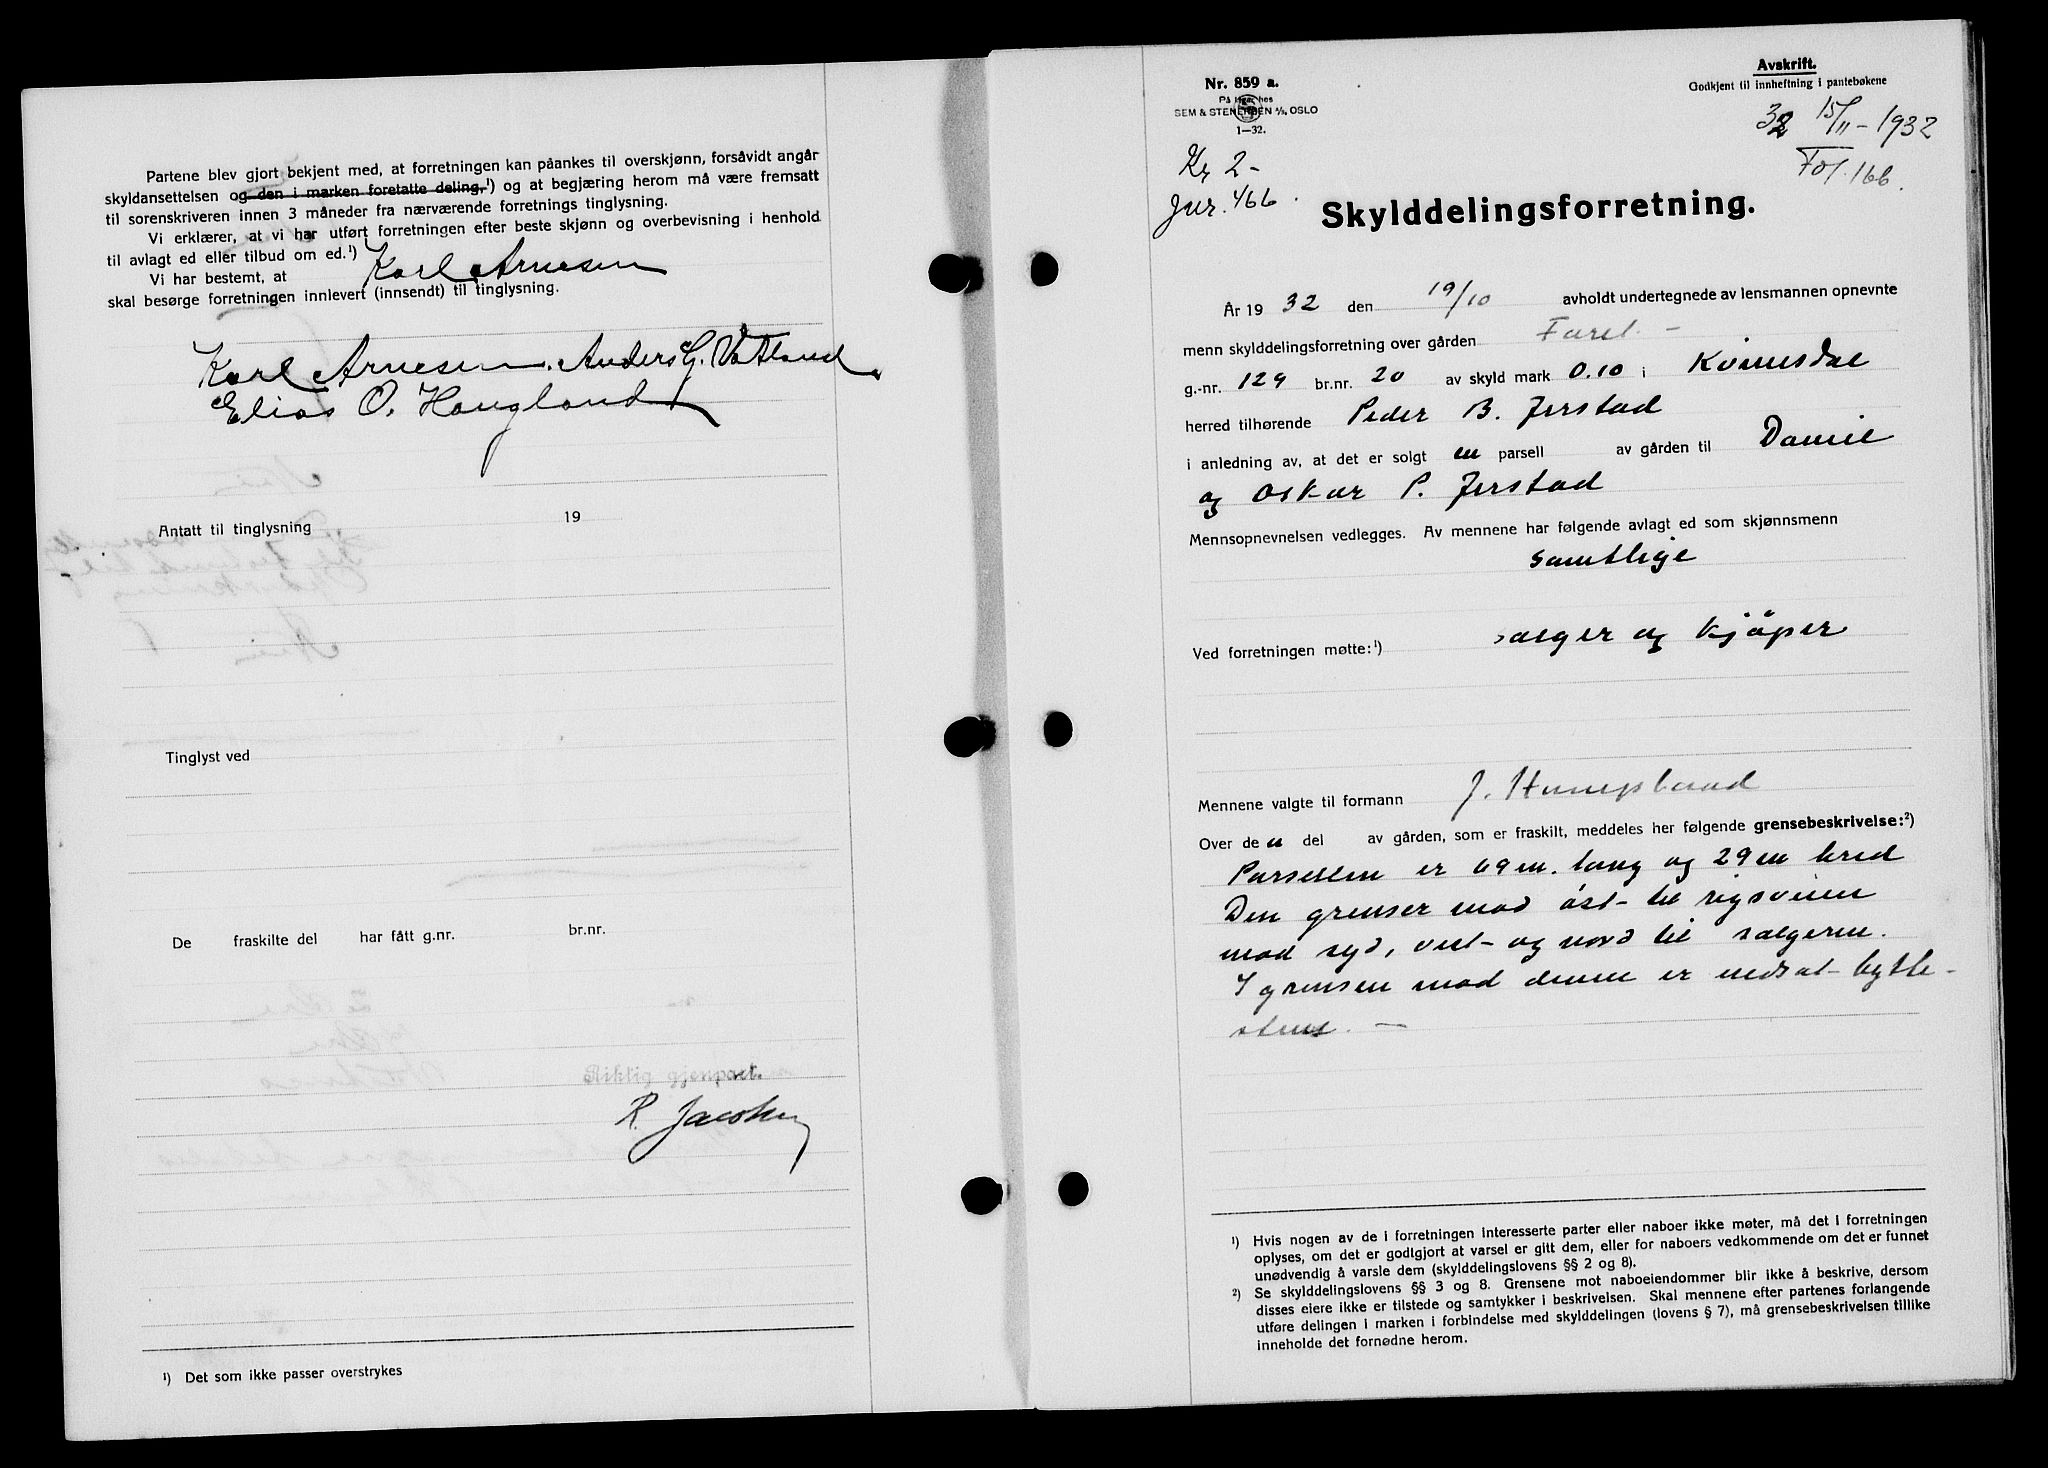 Partene blev gjort bekjent med, at forretningen kan påankes til overskjønn, forsåvidt angår
skyldansettelsen og den i marken foretatte deling,¹) og at begjæring herom må være fremsatt
til sorenskriveren innen 3 måneder fra nærværende forretnings tinglysning.
Vi erklærer, at vi har utført forretningen efter beste skjønn og overbevisning i henhold
til avlagt ed eller tilbud om ed.¹)
Vi har bestemt, at Karl Arnesen
skal besørge forretningen innlevert (innsendt) til tinglysning.
Karl Arnesen. Anders G. Vatland
Elias O. Haugland
Antatt til tinglysning 19
Tinglyst ved
De fraskilte del har fått g.nr. br.nr.
Riktig gjenpart.
R. Jacobsen
¹) Det som ikke passer overstrykes
Avskrift.
Godkjent til innheftning i pantebøkene
Nr. 859 a.
På lager hos
SEM & STENERSEN A/S, OSLO
1—32.
32 15/11-1932
Fol. 166.
Kr 2-
Jnr. 466.
Skylddelingsforretning.
År 1932 den 19/10 avholdt undertegnede av lensmannen opnevnte
menn skylddelingsforretning over gården Faret -
g.-nr. 129 br.nr. 20 av skyld mark 0.10 i Kvinesdal
herred tilhørende Peder B. Jerstad
i anledning av, at det er solgt en parsell av gården til Daniel
og Oskar P. Jerstad
Mennsopnevnelsen vedlegges. Av mennene har følgende avlagt ed som skjønnsmenn
samtlige
Ved forretningen møtte:¹) sælger og kjøper
Mennene valgte til formann J.
Over den del av gården, som er fraskilt, meddeles her følgende grensebeskrivelse:²)
Parsellen er 69 m. lang og 29 m bred
Den grenser mod øst- til rigsveien
mod syd, vest- og nord til sælgeren.
I grensen mod denne er nedsat bytte-
stene. -
¹) Hvis nogen av de i forretningen interesserte parter eller naboer ikke møter, må det i forretningen
oplyses, om det er godtgjort at varsel er gitt dem, eller for naboers vedkommende om det er funnet
unødvendig å varsle dem (skylddelingslovens §§ 2 og 8).
²) Se skylddelingslovens §§ 3 og 8. Grensene mot naboeiendommer blir ikke å beskrive, dersom
disses eiere ikke er tilstede og samtykker i beskrivelsen. Skal mennene efter partenes forlangende
utføre delingen i marken i forbindelse med skylddelingen (lovens § 7), må grensebeskrivelsen tillike
inneholde det fornødne herom.